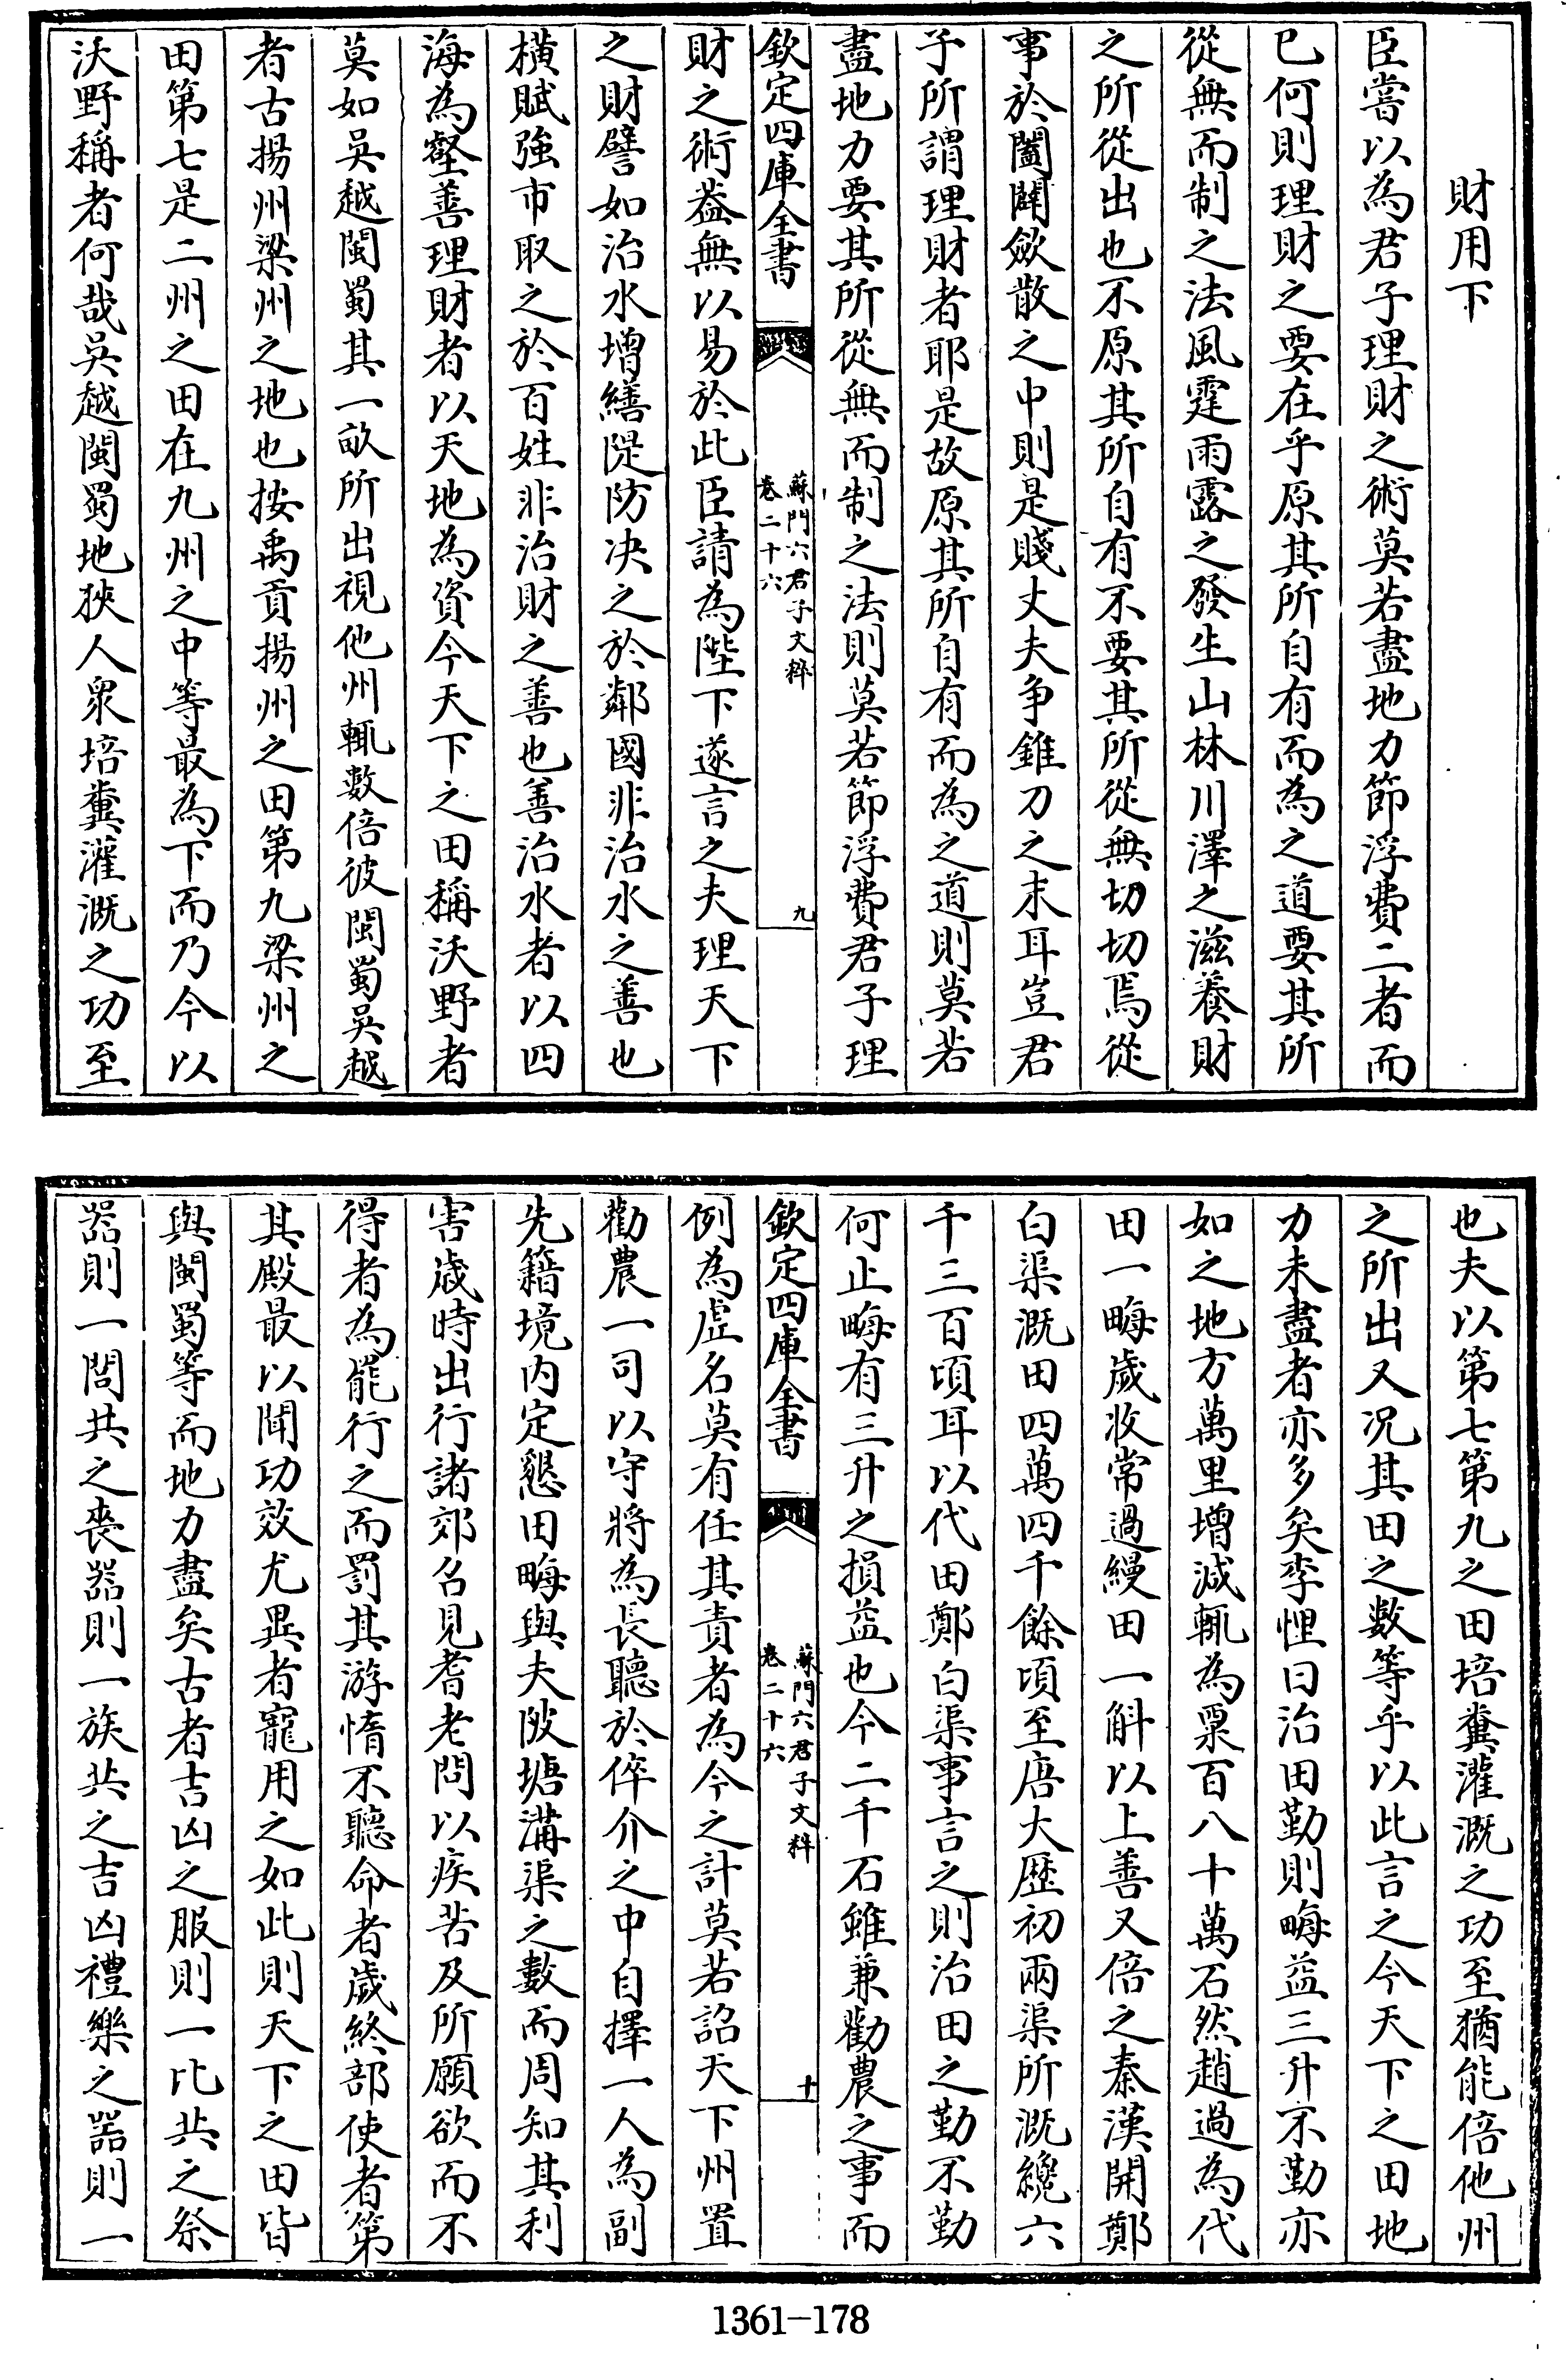 財用下
臣嘗以為君子理財之術莫若盡地力節浮費二者而
已何則理財之要在乎原其所自有而為之道要其所
從無而制之法風霆雨露之發生山林川澤之滋養財
之所從出也不原其所自有不要其所從無切切焉從
事於闔闢斂散之中則是賤丈夫争錐刀之末耳豈君
子所謂理財者耶是故原其所自有而為之道則莫若
盡地力要其所從無而制之法則莫若節浮費君子理
欽定四庫全書
蘇門六君子文粹
卷二十六
九
財之術蓋無以易於此臣請為陛下遂言之夫理天下
之財譬如治水增繕隄防決之於鄰國非治水之善也
橫賦強市取之於百姓非治財之善也善治水者以四
海為壑善理財者以天地為資今天下之田稱沃野者
莫如吳越閩蜀其一畝所出視他州輒數倍彼閩蜀吳越
者古揚州梁州之地也按禹貢揚州之田第九梁州之
田第七是二州之田在九州之中等最為下而乃今以
沃野稱者何哉吳越閩蜀地狹人衆培糞灌溉之功至
也夫以第七第九之田培糞灌溉之功至猶能倍他州
之所出又况其田之數等乎以此言之今天下之田地
力未盡者亦多矣李悝曰治田勤則畮益三升不勤亦
如之地方萬里增減輒為粟百八十萬石然趙過為代
田一畮歲收常過縵田一斛以上善又倍之秦漢開鄭
白渠溉田四萬四千餘頃至唐大歷初兩渠所溉纔六
千三百頃耳以代田鄭白渠事言之則治田之勤不勤
何止畮有三升之損益也今二千石雖兼勸農之事而
欽定四庫全書
蘇門六君子文粹
卷二十六
十
例為虛名莫有任其責者為今之計莫若詔天下州置
勸農一司以守將為長聽於倅介之中自擇一人為副
先籍境内定懇田畮與夫陂塘溝渠之數而周知其利
害歲時出行諸郊名見耆老問以疾苦及所願欲而不
得者為罷行之而罰其游惰不聽命者歲終部使者第
其殿最以聞功效尤異者寵用之如此則天下之田皆
與閩蜀等而地力盡矣古者吉凶之服則一比共之祭
器則一閭共之喪器則一族共之吉凶禮樂之器則一
1361-178